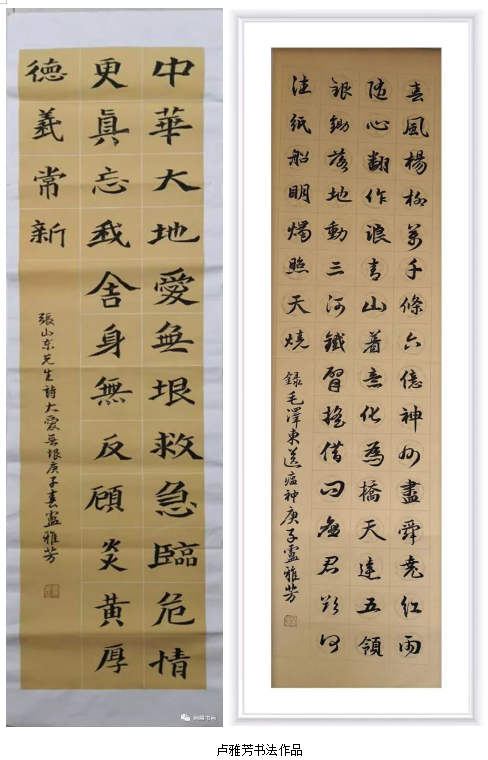 中華大地愛無垠救急臨危情
更眞忘我舍身無反顧炎黄厚
德義常新
張山东先生詩大愛無垠庚子春盧雅芳
春風楊柳萬千條六億神州盡舜堯紅雨
随心翻作浪青山着意化為橋天連五領
銀鋤落地動三河鐵臂搖借问瘟君欲何
往紙船明燭照天燒
録毛澤東送瘟神庚子盧雅芳
卢雅芳书法作品